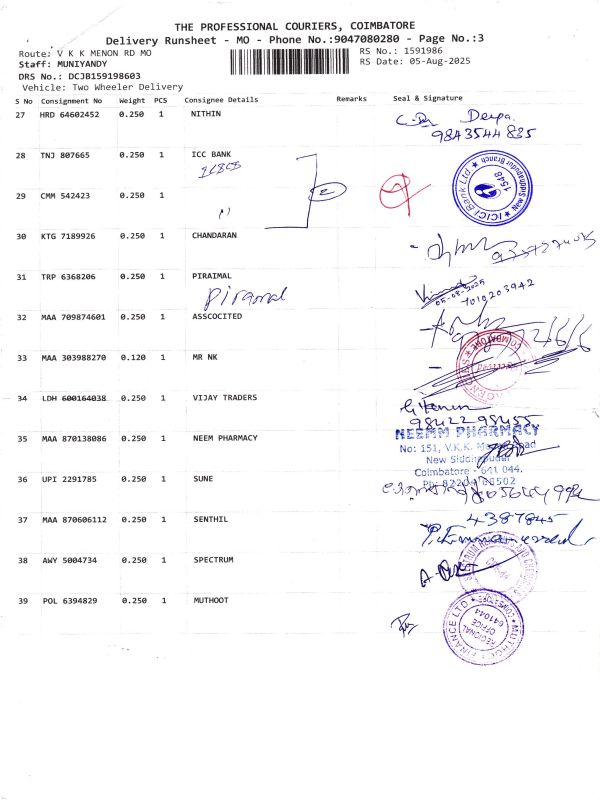 THE PROFESSIONAL COURIERS, COIMBATORE
Delivery Runsheet - MO - Phone No.:9047080280 - Page No.:3
Route: V K K MENON RD MO
RS No.: 1591986
Staff: MUNIYANDY
RS Date: 05-Aug-2025
DRS No.: DCJB159198603
Vehicle: Two Wheeler Delivery
S No Consignment No Weight PCS Consignee Details Remarks Seal & Signature
27 HRD 64602452 0.250 1 NITHIN
9843544835
28 TNJ 807665 0.250 1 ICC BANK
ICICI Bank Ltd
New Siddhapudur Branch
1548
29 CMM 542423 0.250 1
2
30 KTG 7189926 0.250 1 CHANDARAN
31 TRP 6368206 0.250 1 PIRAIMAL
Piramal
05-08-2025
7010203942
32 MAA 709874601 0.250 1 ASSCOCITED
COIMBATORE
33 MAA 303988270 0.120 1 MR NK
34 LDH 600164038 0.250 1 VIJAY TRADERS
9842298455
35 MAA 870138086 0.250 1 NEEM PHARMACY
NEEMM PHARMACY
No: 151, V.K.K. Road
New Siddhapudur
Coimbatore - 641 044.
36 UPI 2291785 0.250 1 SUNE
37 MAA 870606112 0.250 1 SENTHIL
4387845
38 AWY 5004734 0.250 1 SPECTRUM
39 POL 6394829 0.250 1 MUTHOOT
MUTHOOT FINANCE LTD
REGIONAL
OFFICE
641044